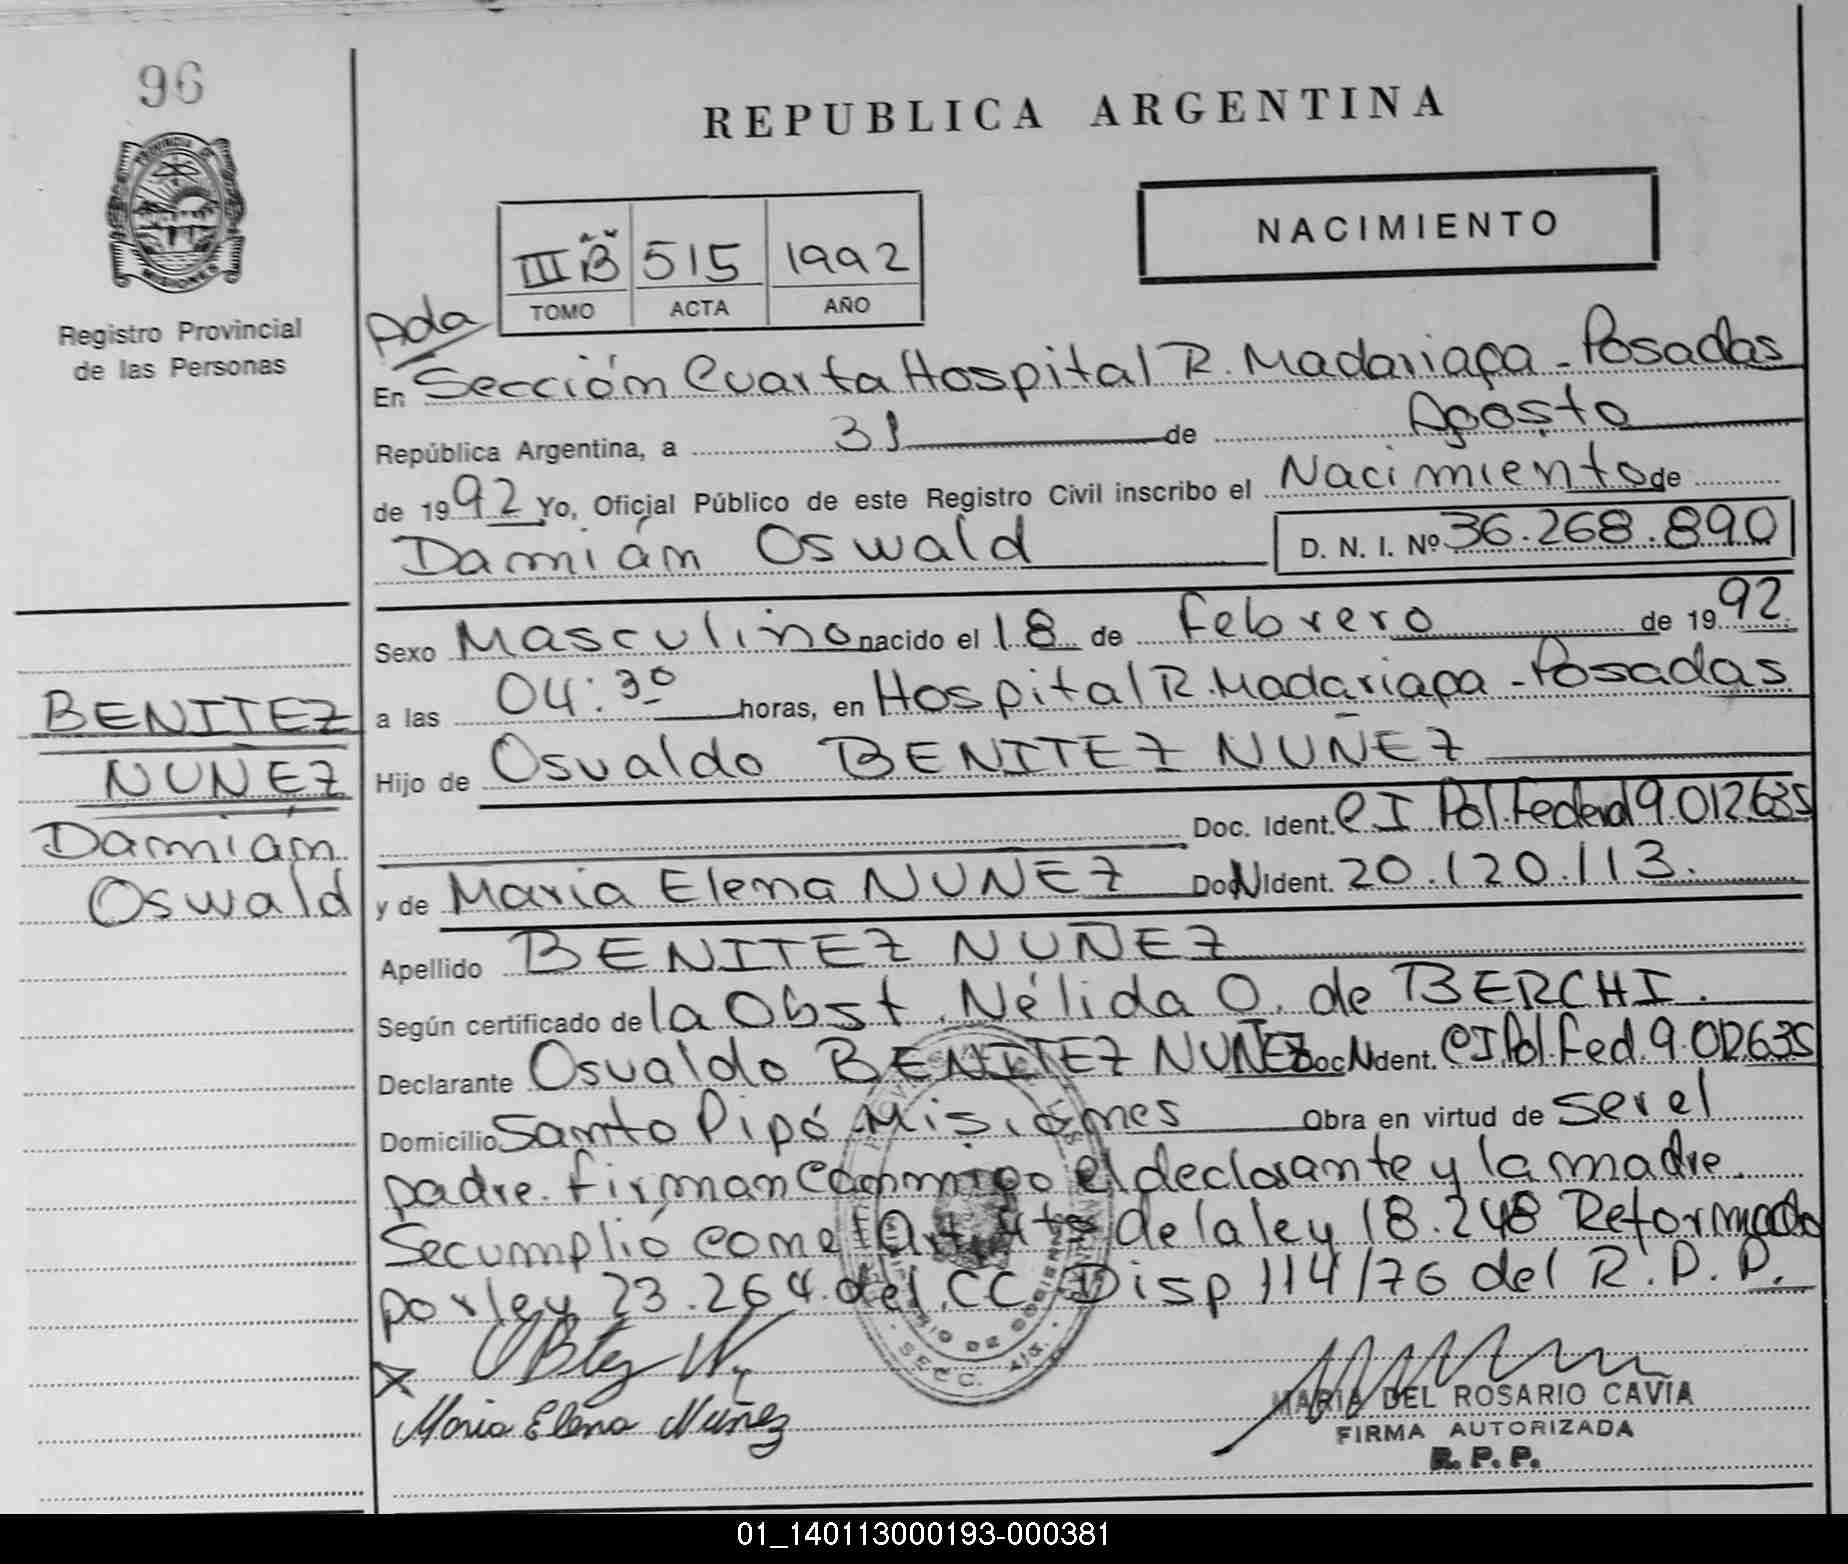 96
PROVINCIA DE
MISIONES
Registro Provincial
de las Personas
REPUBLICA ARGENTINA
NACIMIENTO
III B 515 1992
TOMO ACTA AÑO
Ada
En Sección Cuarta Hospital R. Madariaga - Posadas
República Argentina, a 31 de Agosto
de 1992 Yo, Oficial Público de este Registro Civil inscribo el Nacimiento de
Damián Oswald D. N. I. Nº 36.268.890
Sexo Masculino nacido el 18 de Febrero de 1992
a las 04:30 horas, en Hospital R. Madariaga - Posadas
Hijo de Osvaldo BENITEZ NUÑEZ
Doc. Ident. CI Pol. Federal 9.012635
y de Maria Elena NUÑEZ Doc Ident. 20.120.113.
Apellido BENITEZ NUÑEZ
Según certificado de la Obst. Nélida O. de BERCHI.
Declarante Osvaldo BENITEZ NUÑEZ Doc Ident. CI Pol. Fed. 9.012635
Domicilio Santo Pipó - Misiones Obra en virtud de ser el
padre. firman conmigo el declarante y la madre.
Se cumplió con el Art 4to de la ley 18.248 Reformado
por ley 23.264 del CC. Disp 114/76 del R.P.P.
BENITEZ
NUÑEZ
Damián
Oswald
Maria Elena Nuñez
MARIA DEL ROSARIO CAVIA
FIRMA AUTORIZADA
R. P. P.
01_140113000193-000381